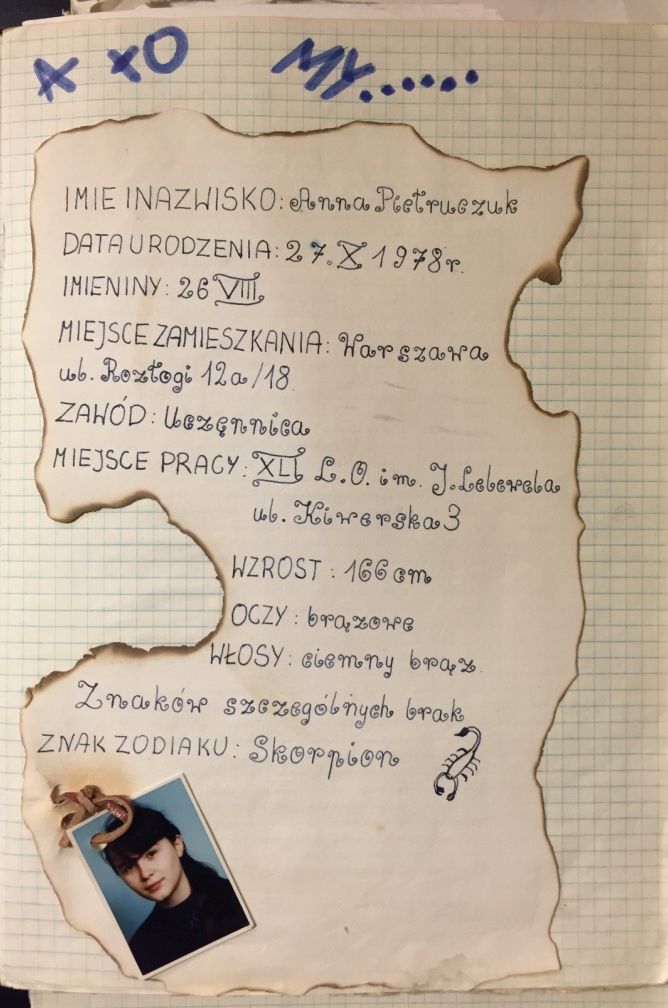 A xO MY......
IMIE I NAZWISKO: Anna Pietruczuk
DATA URODZENIA: 27. X 1978r.
IMIENINY: 26 VIII
MIEJSCE ZAMIESZKANIA: Warszawa
ul. Roztogi 12a/18.
ZAWÓD: Uczęnnica
MIEJSCE PRACY: XLI L.O. im. J. Lelewela
ul. Kiwerska 3
WZROST: 166 cm
OCZY: brązowe
WŁOSY: ciemny brąz.
Znaków szczególnych brak
ZNAK ZODIAKU: Skorpion